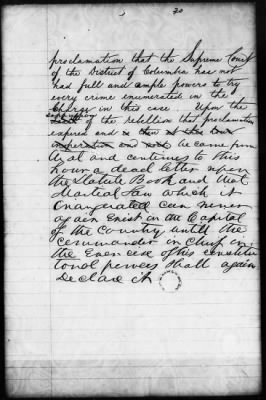 20
proclamation that the Supreme Court
of the District of Columbia has not
had full and ample powers to try
every crime enumerated in the
Charge in this case. Upon the
suppression
of the rebellion that proclamation
expired and & then at this hour
inoperative and void. be came func
tus and continues to this
hour a dead letter upon
the Statute Book and that
Martial Law which it
inaugurated can never
again Exist in the Capital
of the Country, until the
commander in chief in
the Exercise of his constitu
tonal powers shall again
Declare it